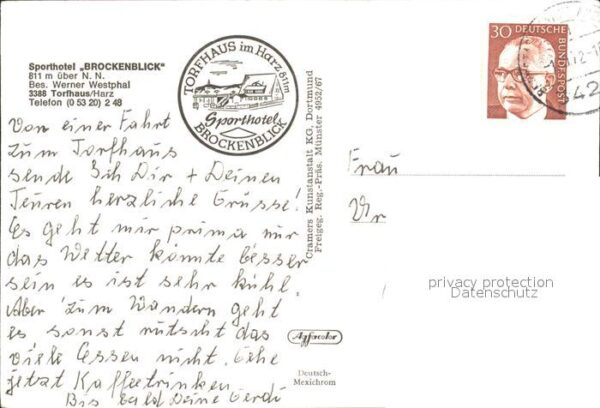 Sporthotel „BROCKENBLICK"
811 m über N. N.
Bes. Werner Westphal
3388 Torfhaus/Harz
Telefon (0 53 20) 2 48
TORFHAUS im Harz 811m
Sporthotel
BROCKENBLICK
30 DEUTSCHE BUNDESPOST
42
Von einer Fahrt
zum Torfhaus
sende Ich Dir + Deinen
Teuren herzliche Grüsse!
Es geht mir prima nur
das Wetter könnte besser
sein es ist sehr kühl.
Aber zum Wandern geht
es sonst rutscht das
viele Essen nicht. Gehe
jetzt Kaffeetrinken
Bis bald Deine Gerdi
Cramers Kunstanstalt KG, Dortmund
Freigeg. Reg.-Präs. Münster 4952/67
Agfacolor
Deutsch-
Mexichrom
Frau
privacy protection
Datenschutz